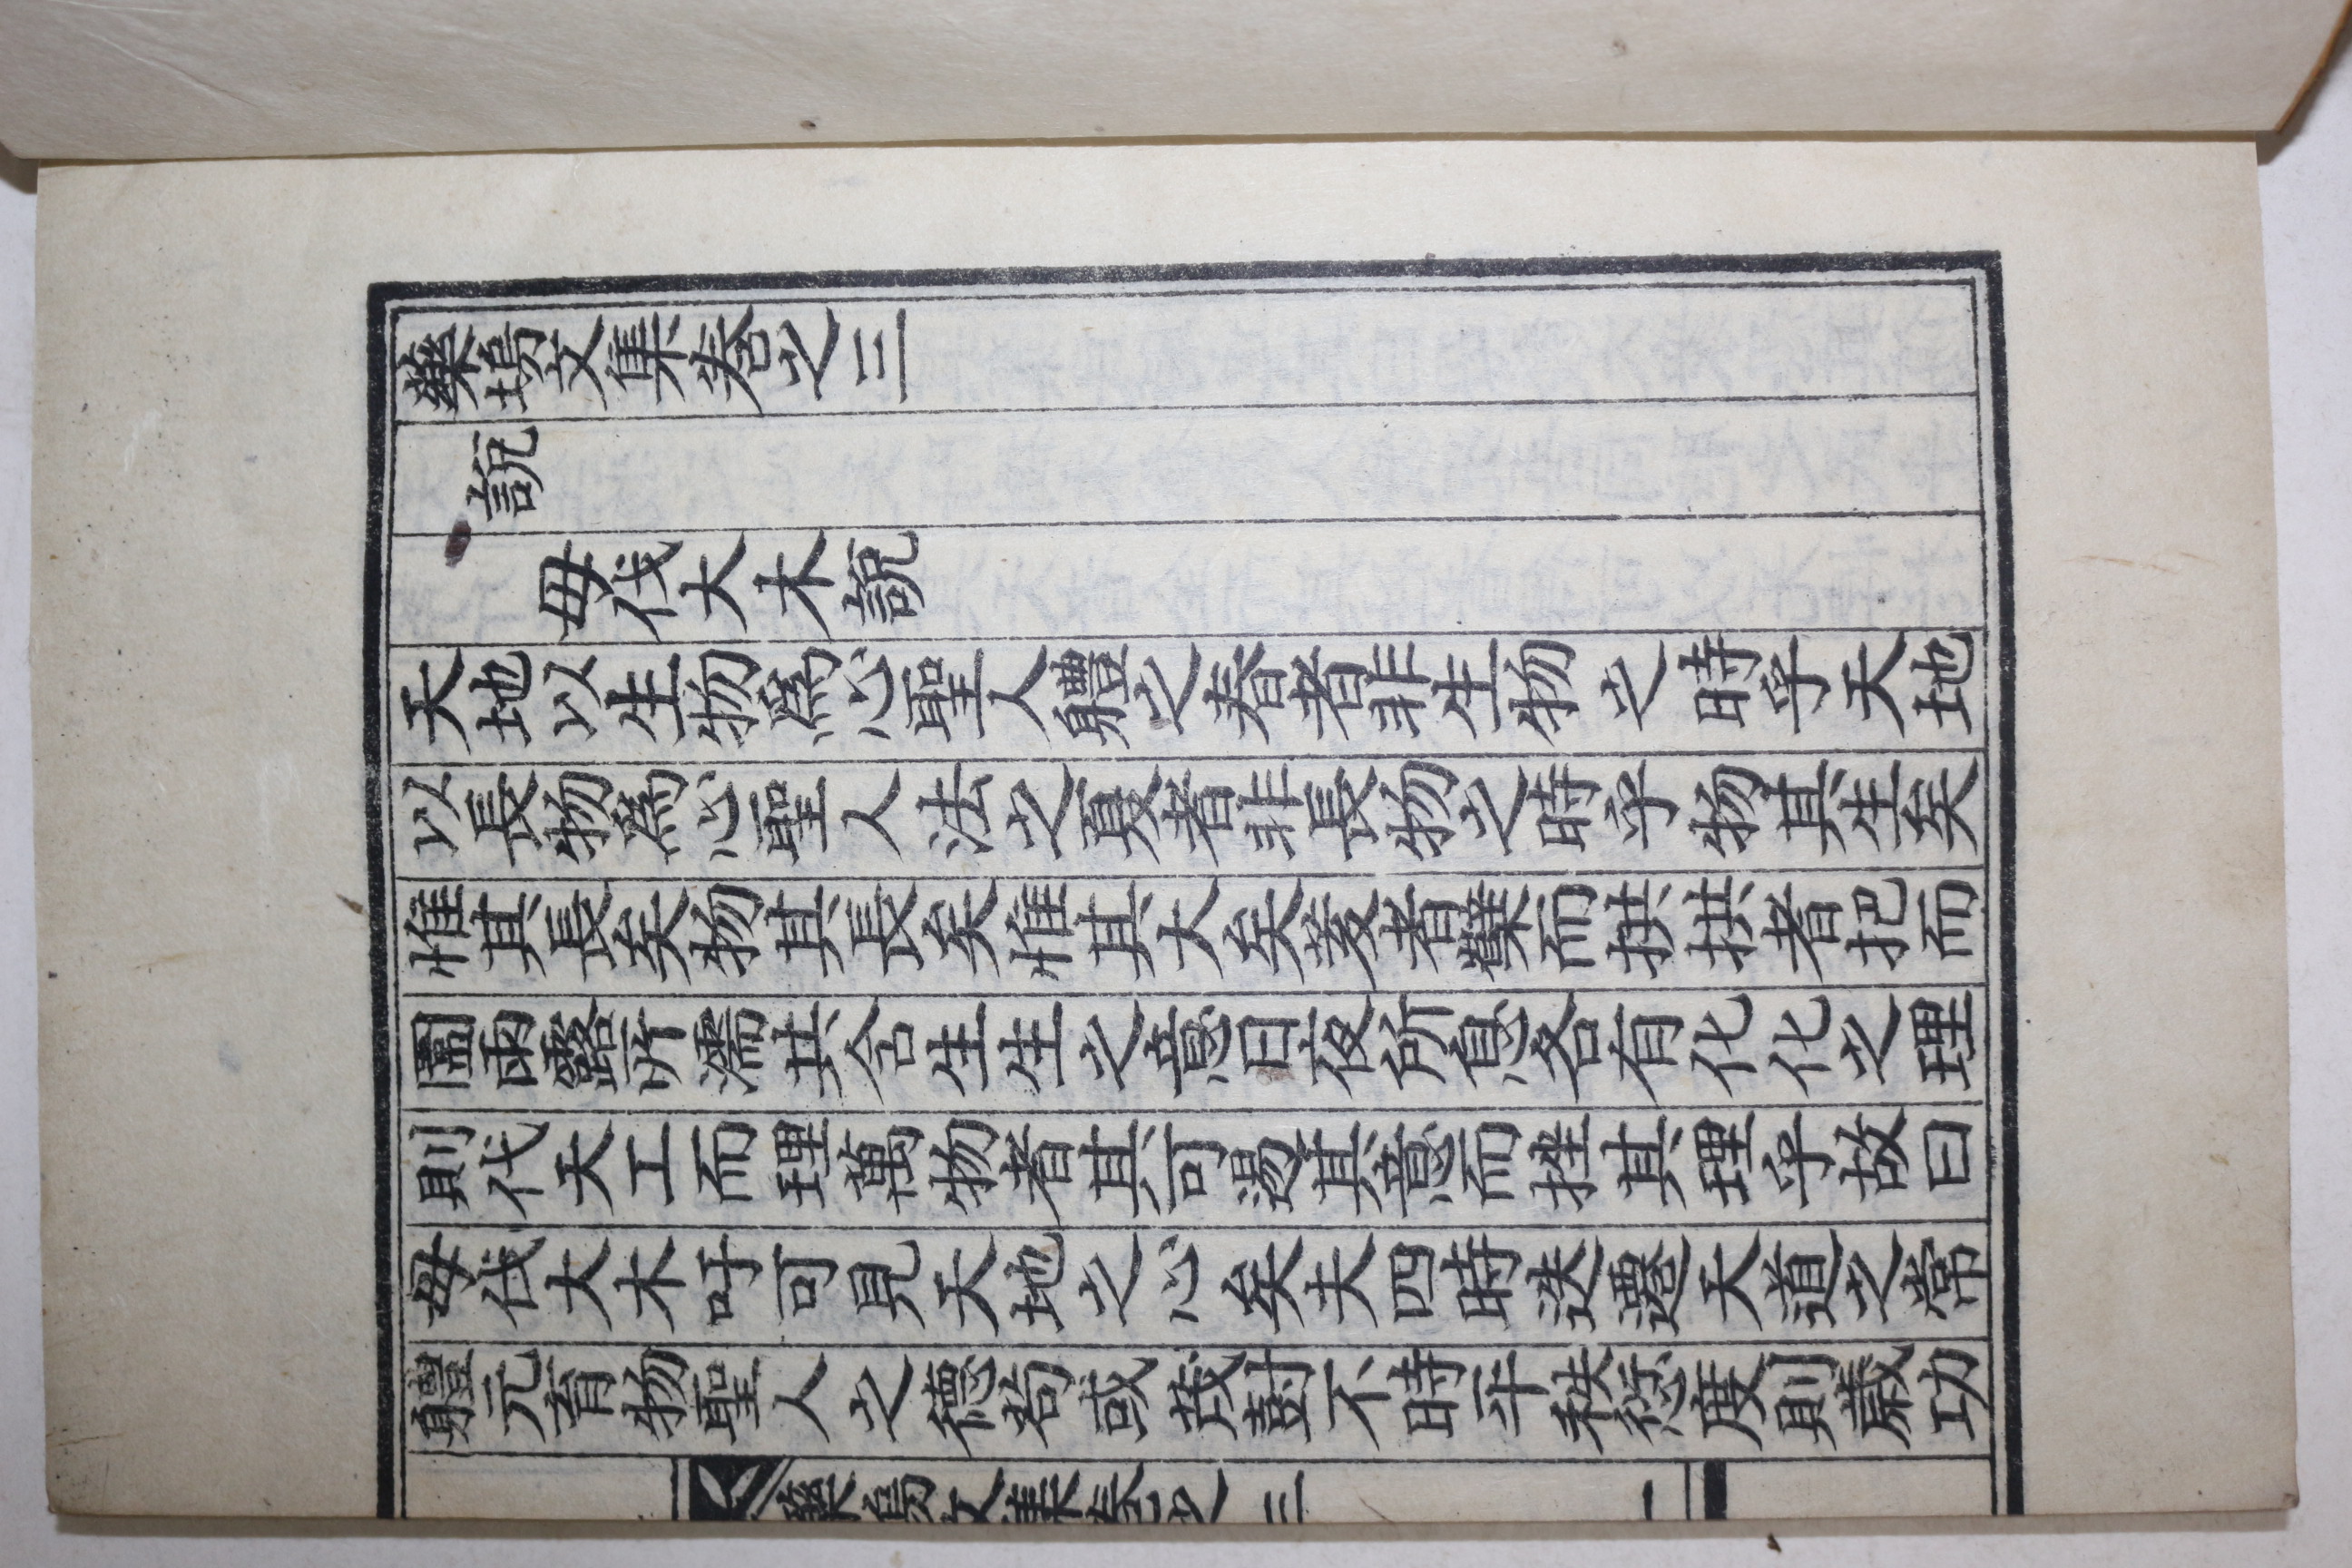 藥塢文集卷之三
說
毋伐大木說
天地以生物爲心聖人軆之春者非生物之時乎天地
以長物爲心聖人法之夏者非長物之時乎物其生矣
惟其長矣物其長矣惟其大矣荄者蘖而拱拱者把而
圍雨露所濡共含生生之意日夜所息各有化化之理
則代天工而理萬物者其可其意而挫其理乎故曰
毋伐大木吁可見天地之心矣夫四時迭遷天道之常
軆元育物聖人之德苟或茂對不時平秩愆度則歲功
藥塢文集卷之三 一